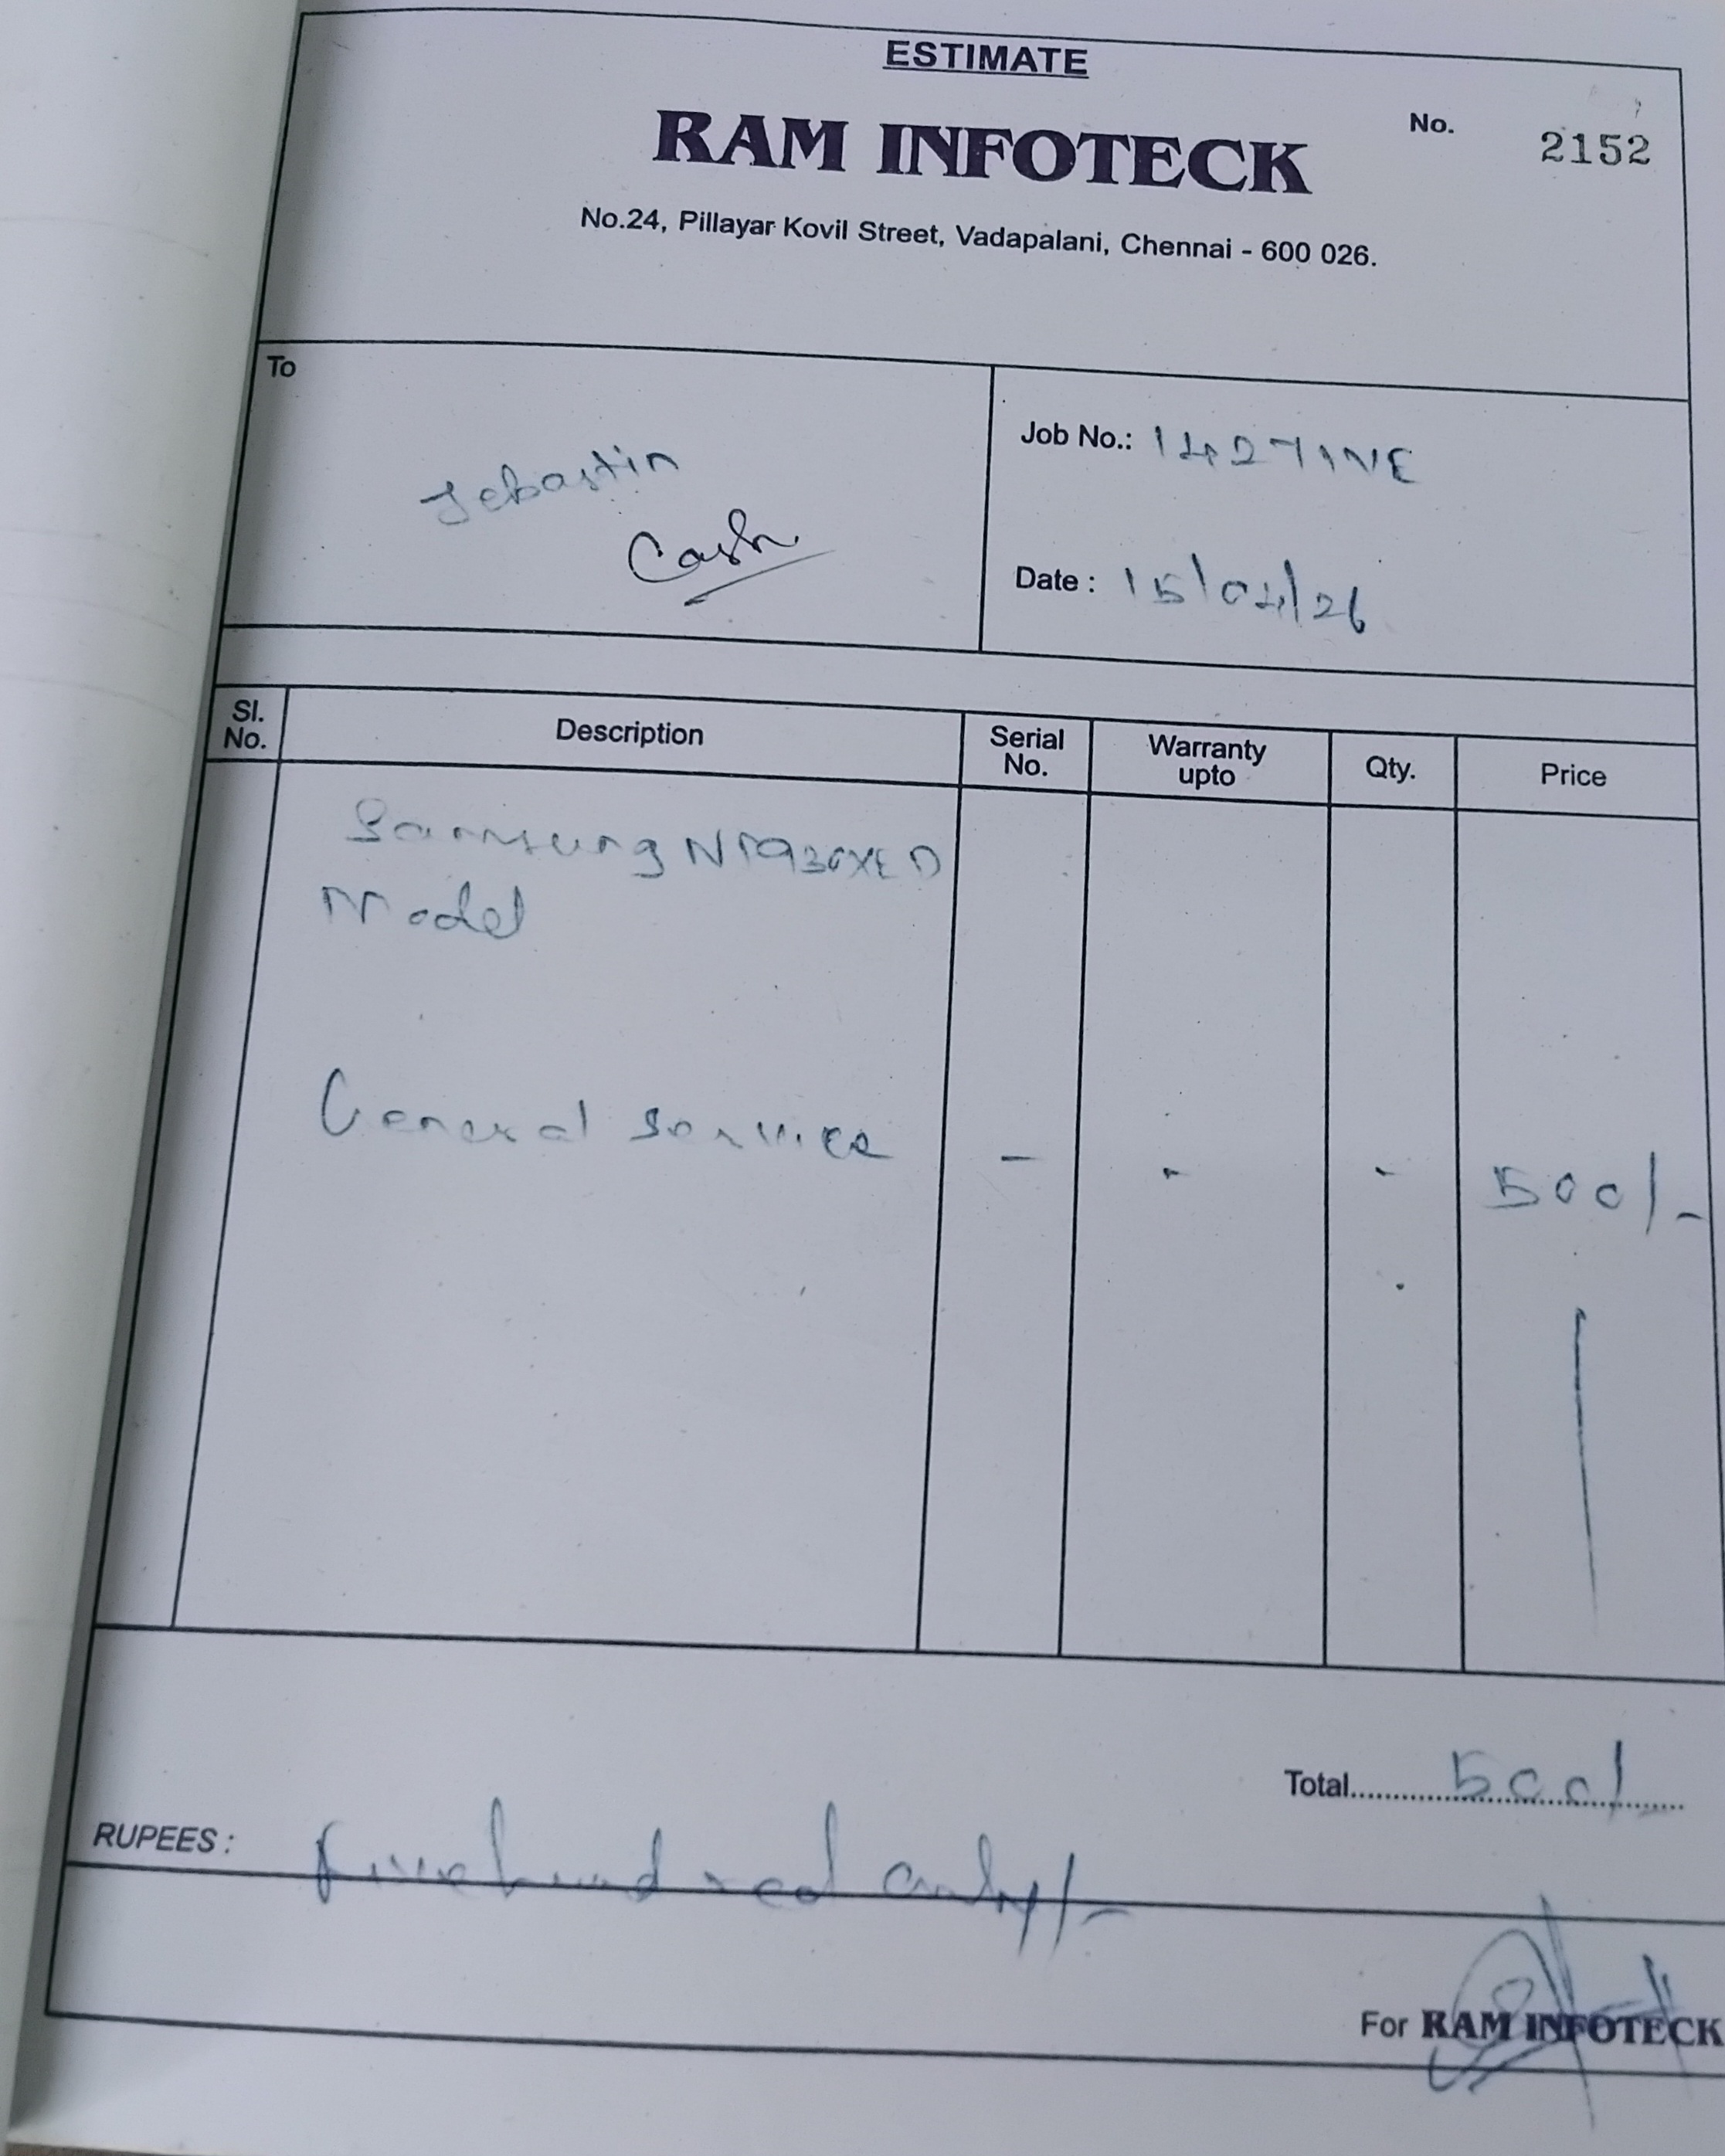 ESTIMATE
No. 2152
RAM INFOTECK
No.24, Pillayar Kovil Street, Vadapalani, Chennai - 600 026.
To
Sebastin
Cash
Job No.: 1427INE
Date : 15/04/26
Sl. No. Description Serial No. Warranty upto Qty. Price
Samsung NP930XED
Model
General service - - - 500/-
Total 500/-
RUPEES : Five hundred only/-
For RAM INFOTECK